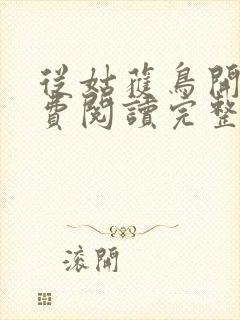 從姑蓷鳥開
費閱讀完整
滾開